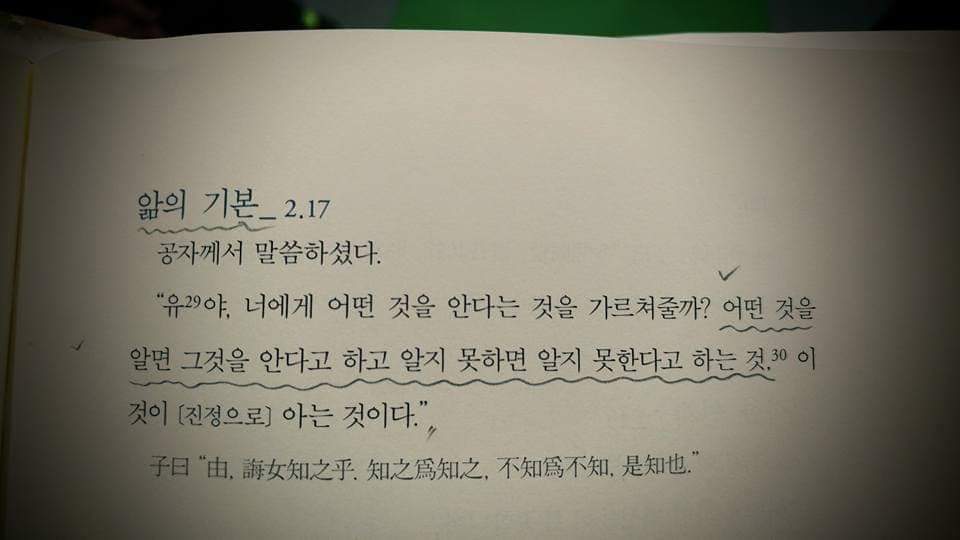 앎의 기본_ 2.17
공자께서 말씀하셨다.
“유29야, 너에게 어떤 것을 안다는 것을 가르쳐줄까? 어떤 것을
알면 그것을 안다고 하고 알지 못하면 알지 못한다고 하는 것,30 이
것이 [진정으로] 아는 것이다.”
子曰 “由, 誨女知之乎. 知之爲知之, 不知爲不知, 是知也.”